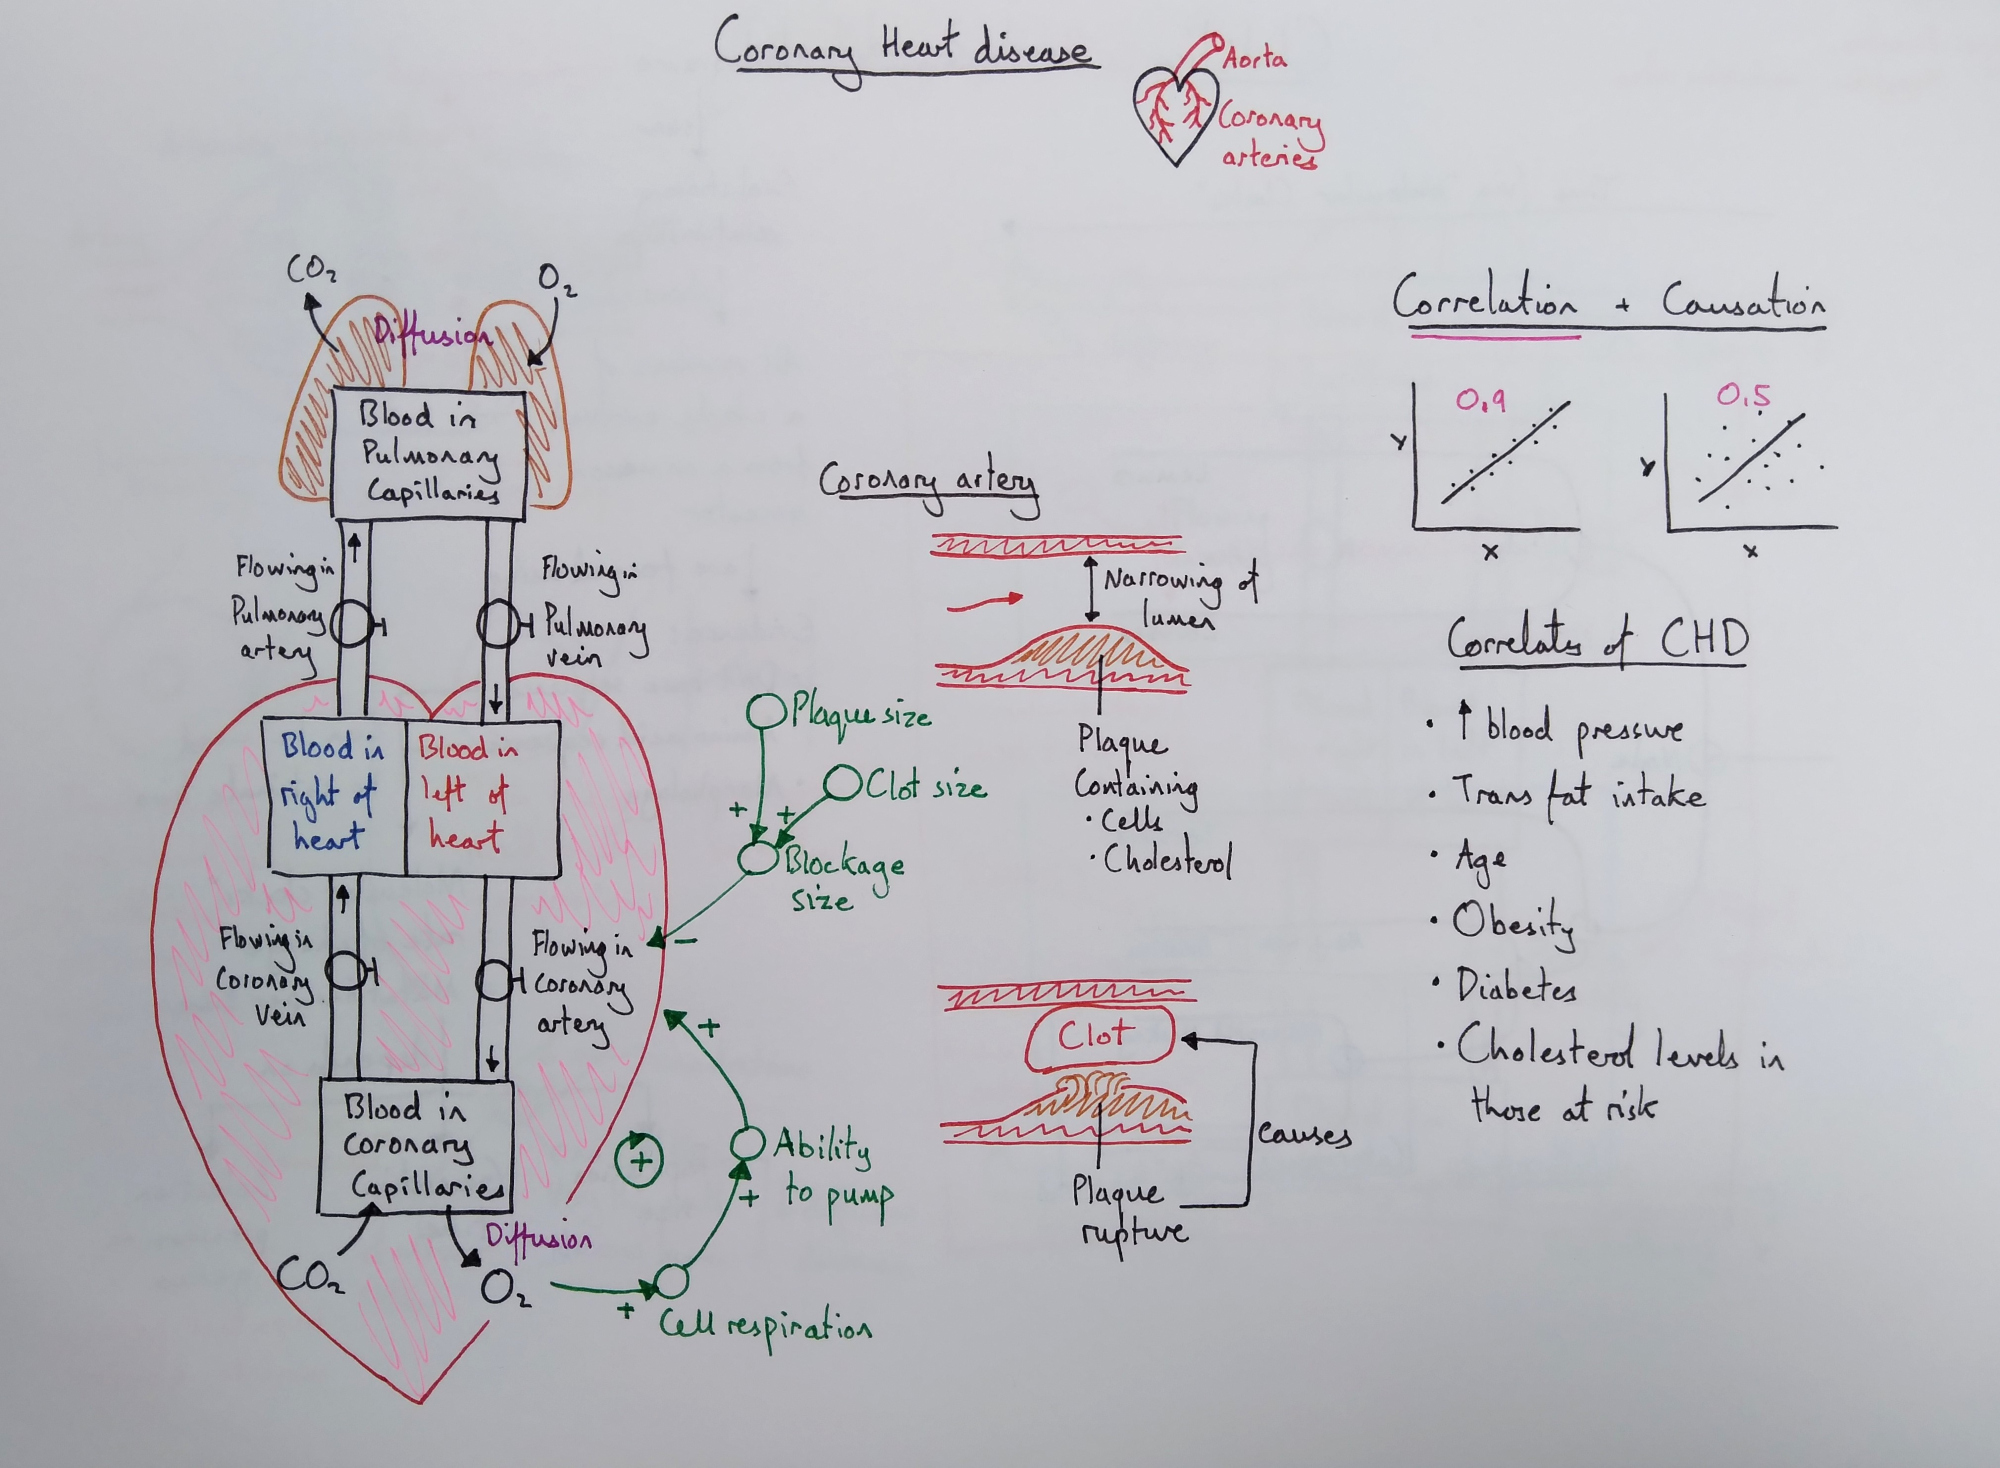 Coronary Heart disease
Aorta
Coronary
arteries
CO₂
O₂
Diffusion
Blood in
Pulmonary
Capillaries
Flowing in
Pulmonary
artery
Flowing in
Pulmonary
vein
Blood in
right of
heart
Blood in
left of
heart
Flowing in
Coronary
Vein
Flowing in
Coronary
artery
Blood in
Coronary
Capillaries
CO₂
Diffusion
O₂
Plaque size
Clot size
+
+
Blockage
size
-
+
Ability
to pump
+
+
+
Cell respiration
Coronary artery
Narrowing of
lumen
Plaque
Containing
· Cells
· Cholesterol
Clot
causes
Plaque
rupture
Correlation + Causation
0.9
y
x
0.5
y
x
Correlates of CHD
· ↑ blood pressure
· Trans fat intake
· Age
· Obesity
· Diabetes
· Cholesterol levels in
those at risk